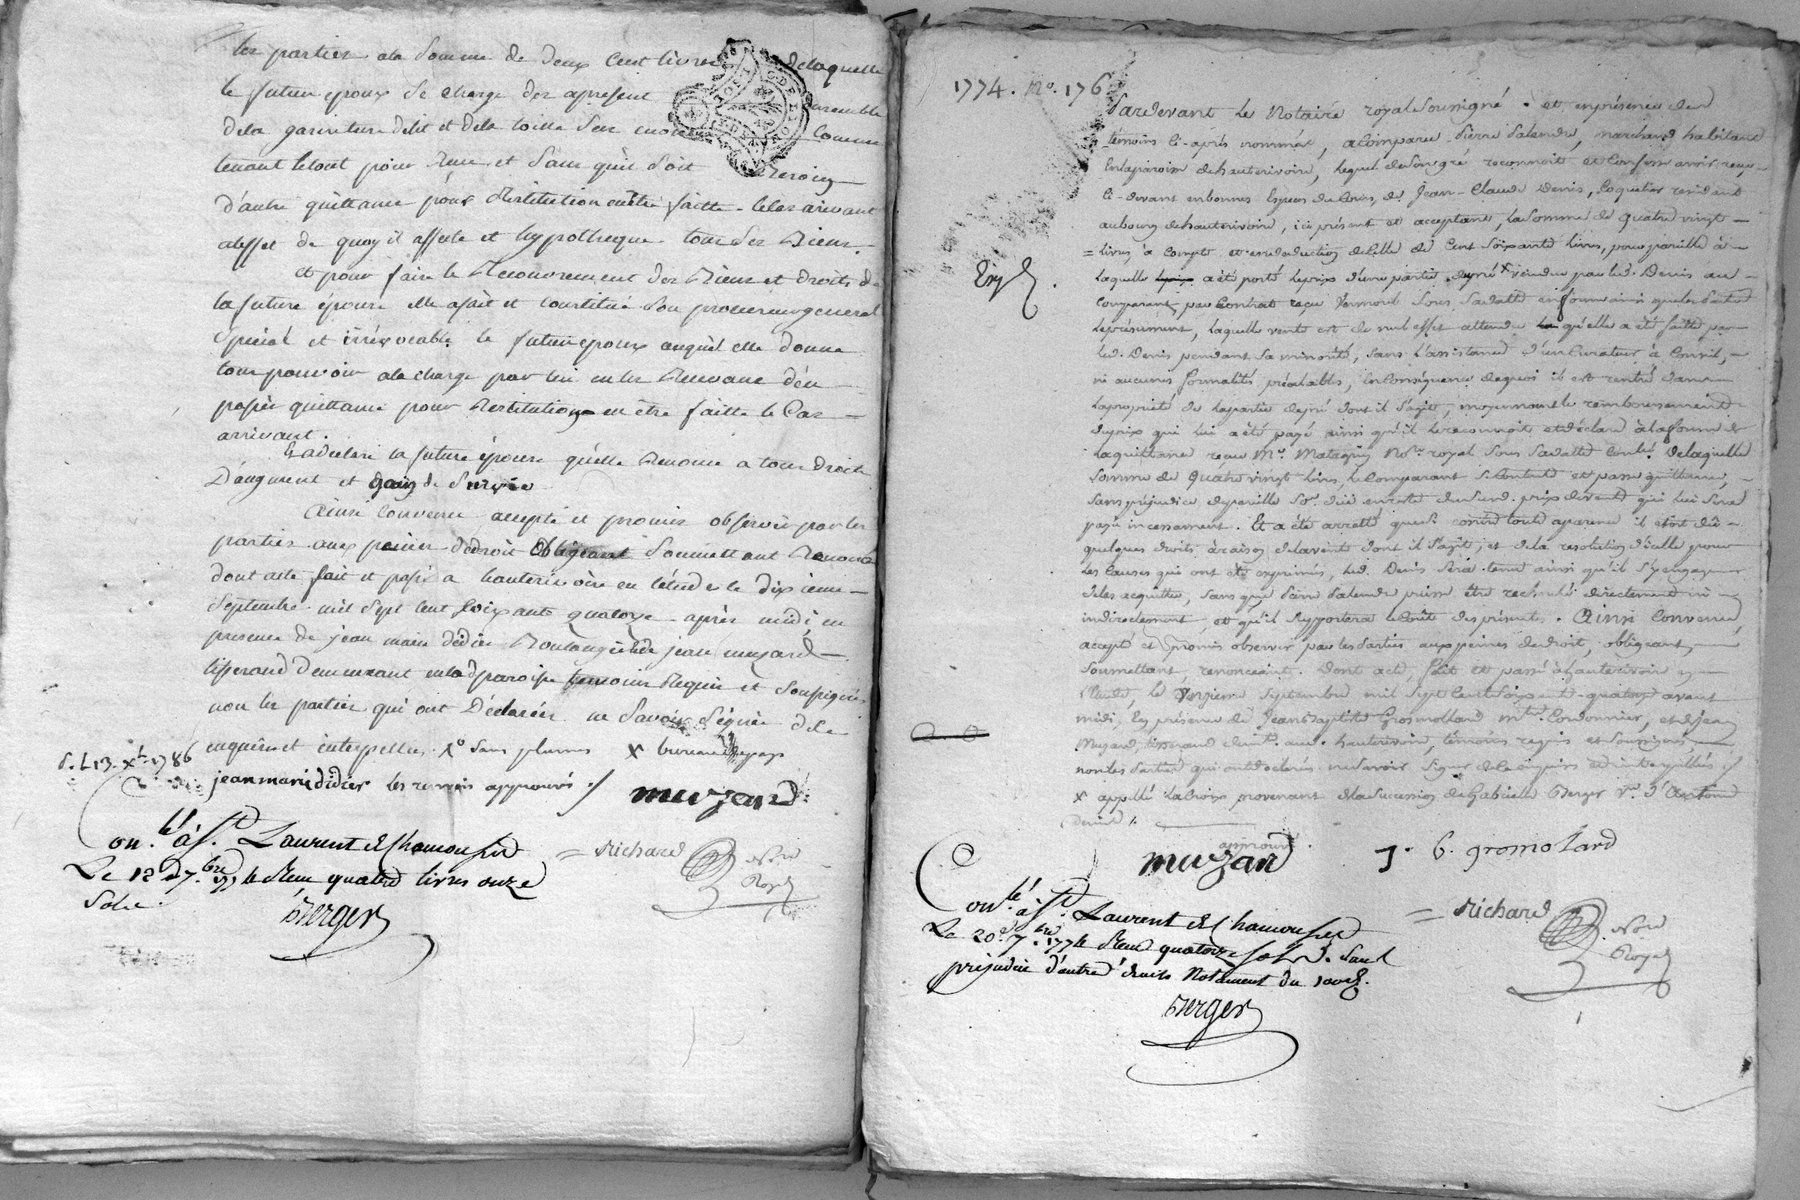 les parties ala Somme de deux Cent livres delaquelle
le futur epoux Se charge des apresent
dela garniture delit et dela toille Sur
tenant letout pour reçu et Sans qu'il Soit besoing
d'autre quittance pour Restitution en être faitte le Cas arivant
aleffet de quoy il affecte et hypotheque tous Ses Biens
et pour faire le Recouvrement des Biens et droits de
la future épouse elle afait et Constitué Son procureur general
Special et irrévocable le futur epoux auquel elle donne
tout pouvoir ala charge par lui en les Recevant d'en
passer quittance pour Restitution en être faitte le Cas
arrivant.
Et adeclaré la future épouse qu'elle Renonce a tous droits
D'augment et gain de Survie
Ainsi Convenu accepté et promis observer par les
parties aux peines de droit obligeant Soumettant Renonce
dont acte fait et passé a hauterivoire en l'étude le dix ieme
Septembre mil Sept Cent Soixante quatorze après midi, en
presence de jean marie didier Boulanger et de jean muzard
tisserand demeurant enlad paroisse temoins Requis et Soussignés
non les parties qui ont Déclarées ne Savoir Signer dece
enquises et interpellées
S. L 13. Xbre 1786
jeanmarie didier les renvois approuvés ./ muzard
Conlé à St. Laurent de Chamousset
Le 12 d 7.bre 1774 Reçu quatre livres onze
Sols.
Richard Nore Royal
Berger
1774. No. 176
Pardevant Le Notaire royal Soussigné . et en présence des
témoins ci-après nommés, a Comparu Pierre Salendre, marchand habitant
En la paroisse de hauterivoire, lequel de Son gré reconnoit et Confesse avoir reçu
ci-devant en bonnes Especes du Cours, de Jean-Claude Denis, Coquetier resident
au bourg de hauterivoire, ici présent et acceptant, la Somme de quatre vingt
livres à Compte et en deduction de Celle de Cent Soixante livres, pour pareille à
laquelle a été porté le prix d'une partie de pré x vendue par led. Denis au
Comparant, par Contrat reçu Sous Sa datte en forme ainsi que les Parties
le présument, laquelle vente est de nul effet attendu qu'elle a été faite par
led. Denis pendant Sa minorité, Sans l'assistance d'un Curateur à Conseil,
ni aucunes formalités préalables, En Conséquence de quoi il est rentré dans
la propriété de la partie de pré dont il S'agit, moyennant le remboursement
du prix qui lui a été payé ainsi qu'il le reconnoit et déclare à la forme de
la quittance reçue Me. Notre. royal Sous Sa datte Conlé. De laquelle
Somme de Quatre vingt livres le Comparant Se Contente et passe quittance,
Sans préjudice de pareille Se. due en reste du Surd. prix de vente qui lui Sera
payé incessament. Et a été arrêté que Si il étoit dû
quelques droits à raison de la vente dont il S'agit, et de la resolution d'icelle pour
les Causes qui ont été exprimées, led. Denis Sera tenu ainsi qu'il S'y engage
de les acquitter, Sans que Pierre Salendre puisse être recherché directement ni
indirectement, et qu'il Supportera le Coût des présentes. Ainsi Convenu
accepté et promis observer par les Parties aux peines de droit, obligeant,
Soumettant, renonceant. Dont acte, fait et passé à hauterivoire en
l'Etude, le Septembre mil Sept Cent Soixante-quatorze avant
midi, En présence de Jean Baptiste Gromollard mtre. Cordonnier, et de jean
Muzard, tisserand demts. aud. hauterivoire, témoins requis et Soussignés,
non les Parties qui ont déclarés ne Savoir Signer de ce enquises et interpellées ./
x appellé la Croix provenant de la Succession de Gabrielle Berger ve. d'Antoine
Denis ./.
approuvé.
muzard J. b. gromolard
Conlé. à St. Laurent de Chamousset
Le 20e. 7.bre 1774 Reçu quatorze Sols. Sauf
préjudice d'autre droits Notament du 100e.
Richard Nore Royal
Berger